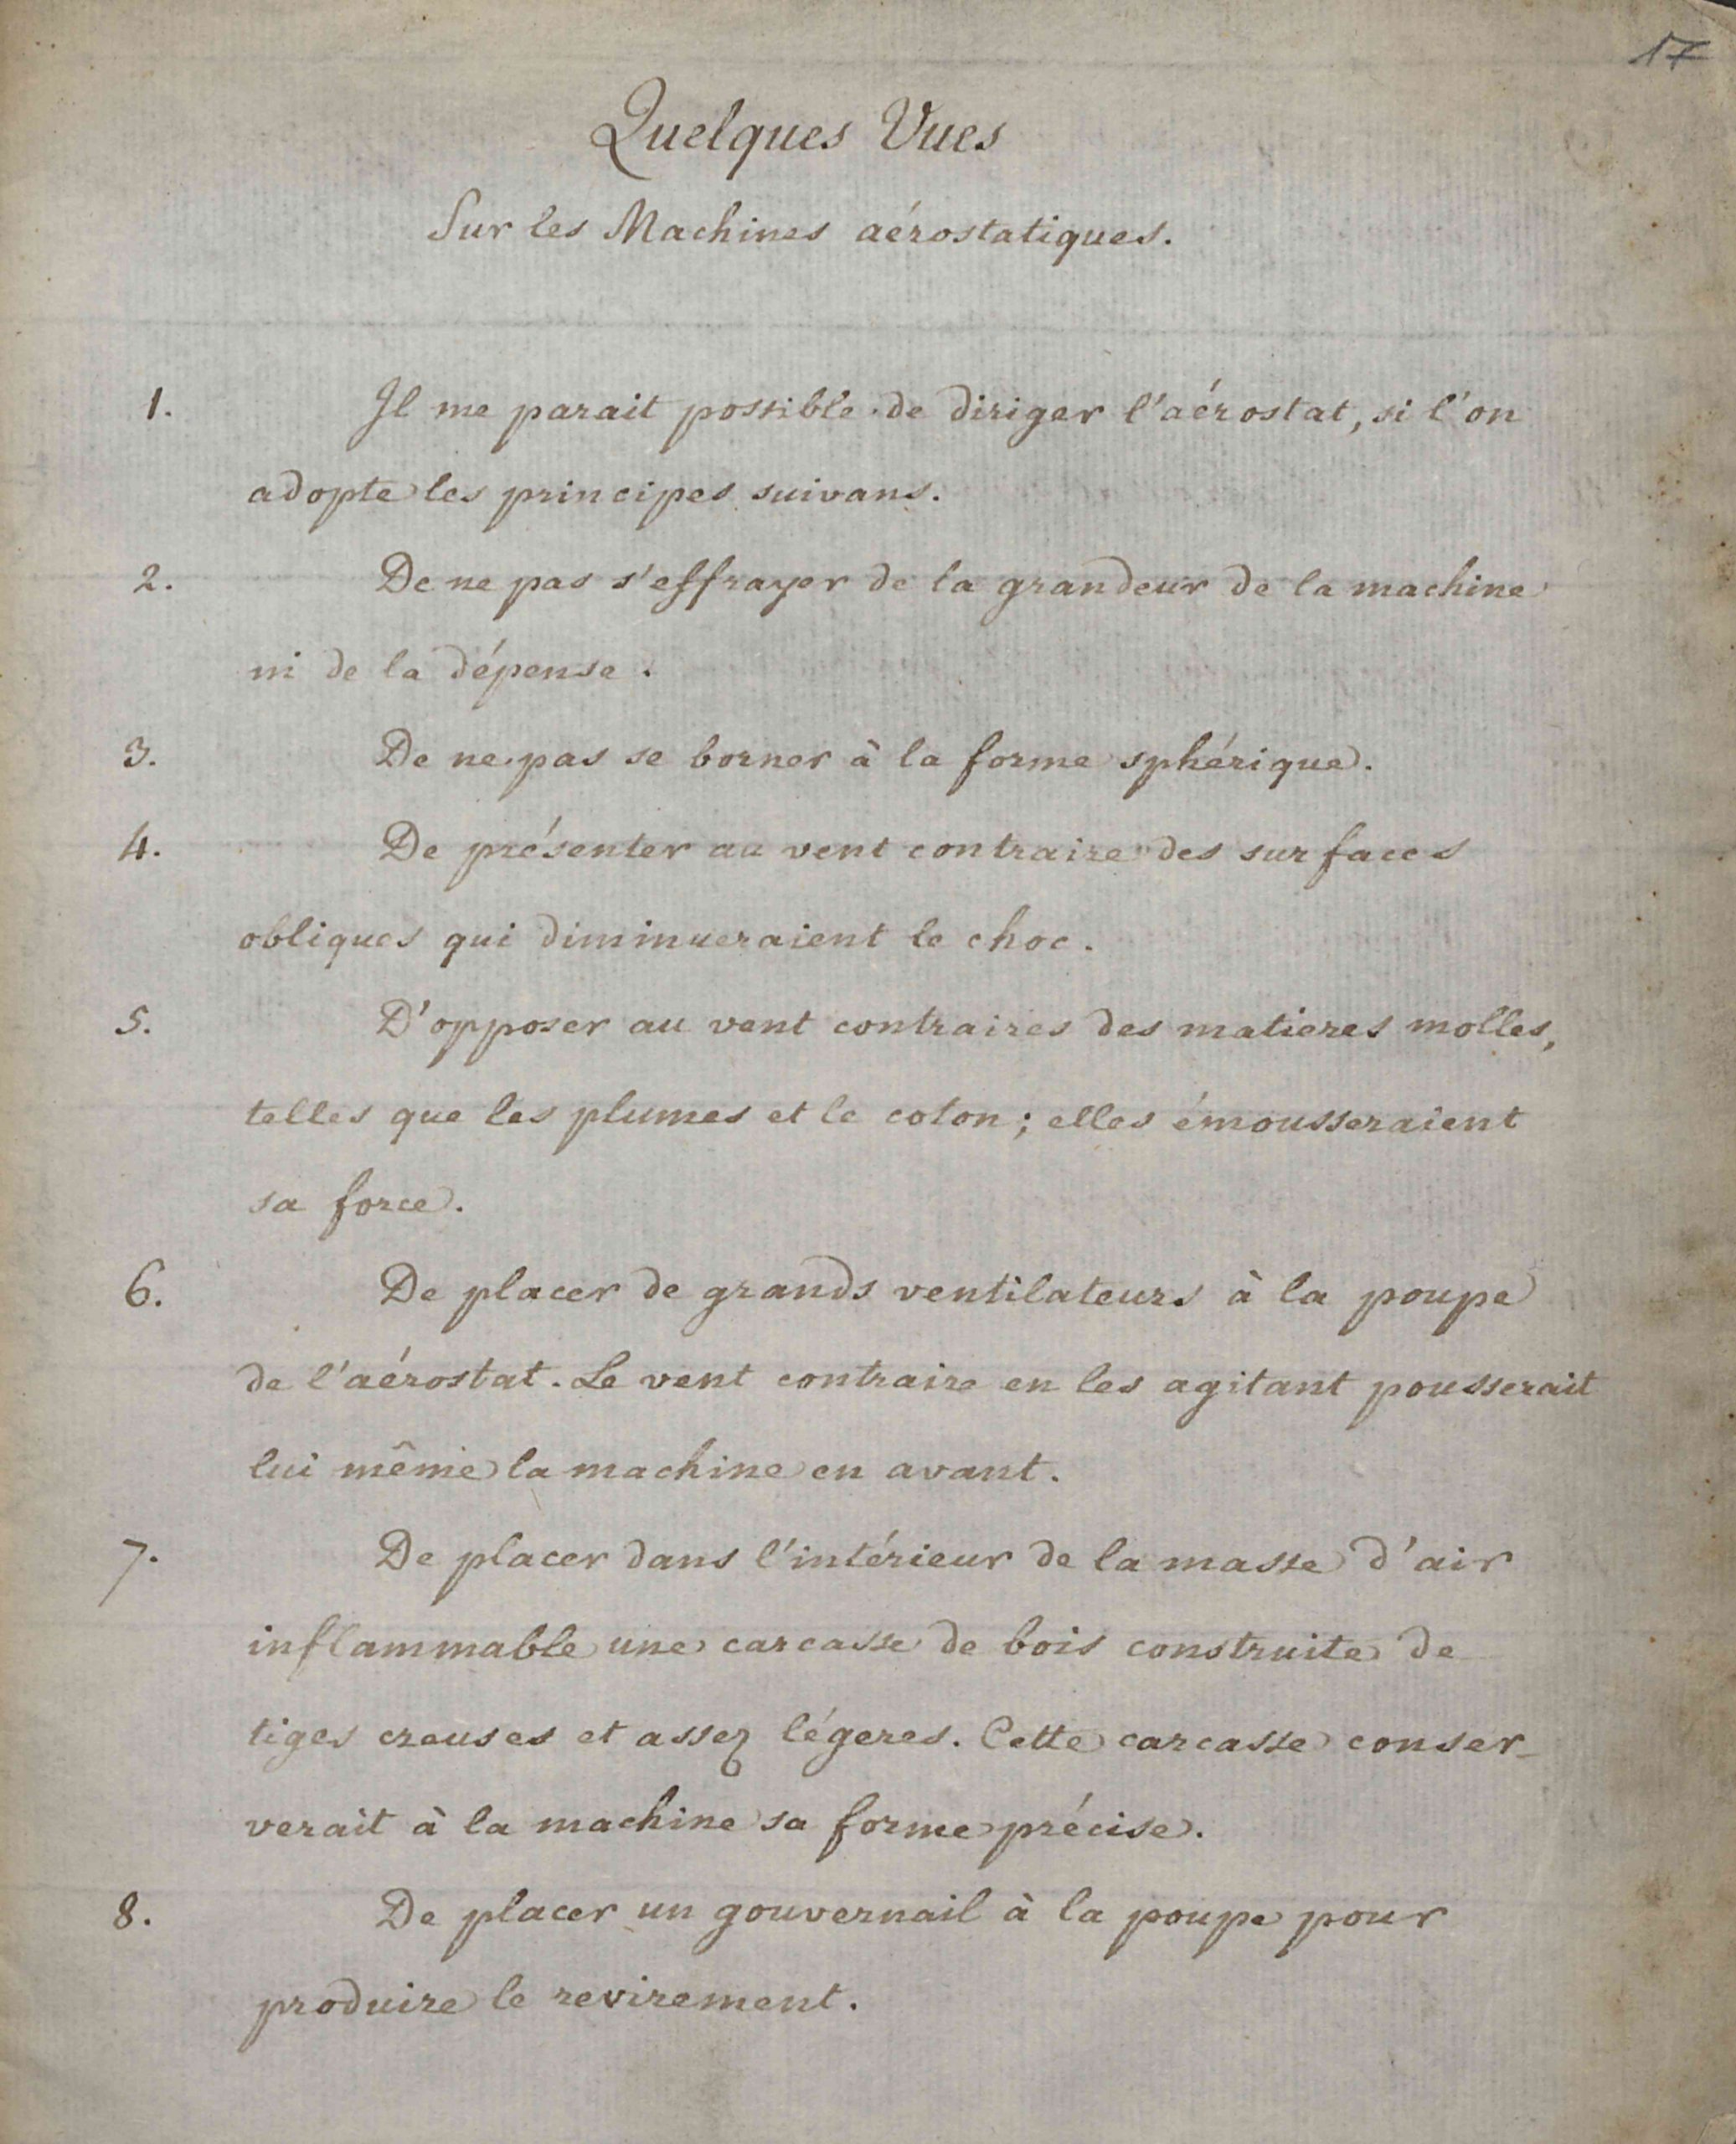 17
Quelques Vues
Sur les Machines aérostatiques.
1. Il me parait possible de diriger l'aérostat, si l'on
adopte les principes suivans.
2. De ne pas s'effrayer de la grandeur de la machine
ni de la dépense.
3. De ne pas se borner à la forme sphérique.
4. De présenter au vent contraire des surfaces
obliques qui diminueraient le choc.
5. D'opposer au vent contraires des matieres molles,
telles que les plumes et le coton; elles émousseraient
sa force.
6. De placer de grands ventilateurs à la poupe
de l'aérostat. Le vent contraire en les agitant pousserait
lui même la machine en avant.
7. De placer dans l'intérieur de la masse d'air
inflammable une carcasse de bois construite de
tiges creuses et assez légeres. Cette carcasse conser-
verait à la machine sa forme précise.
8. De placer un gouvernail à la poupe pour
produire le revirement.